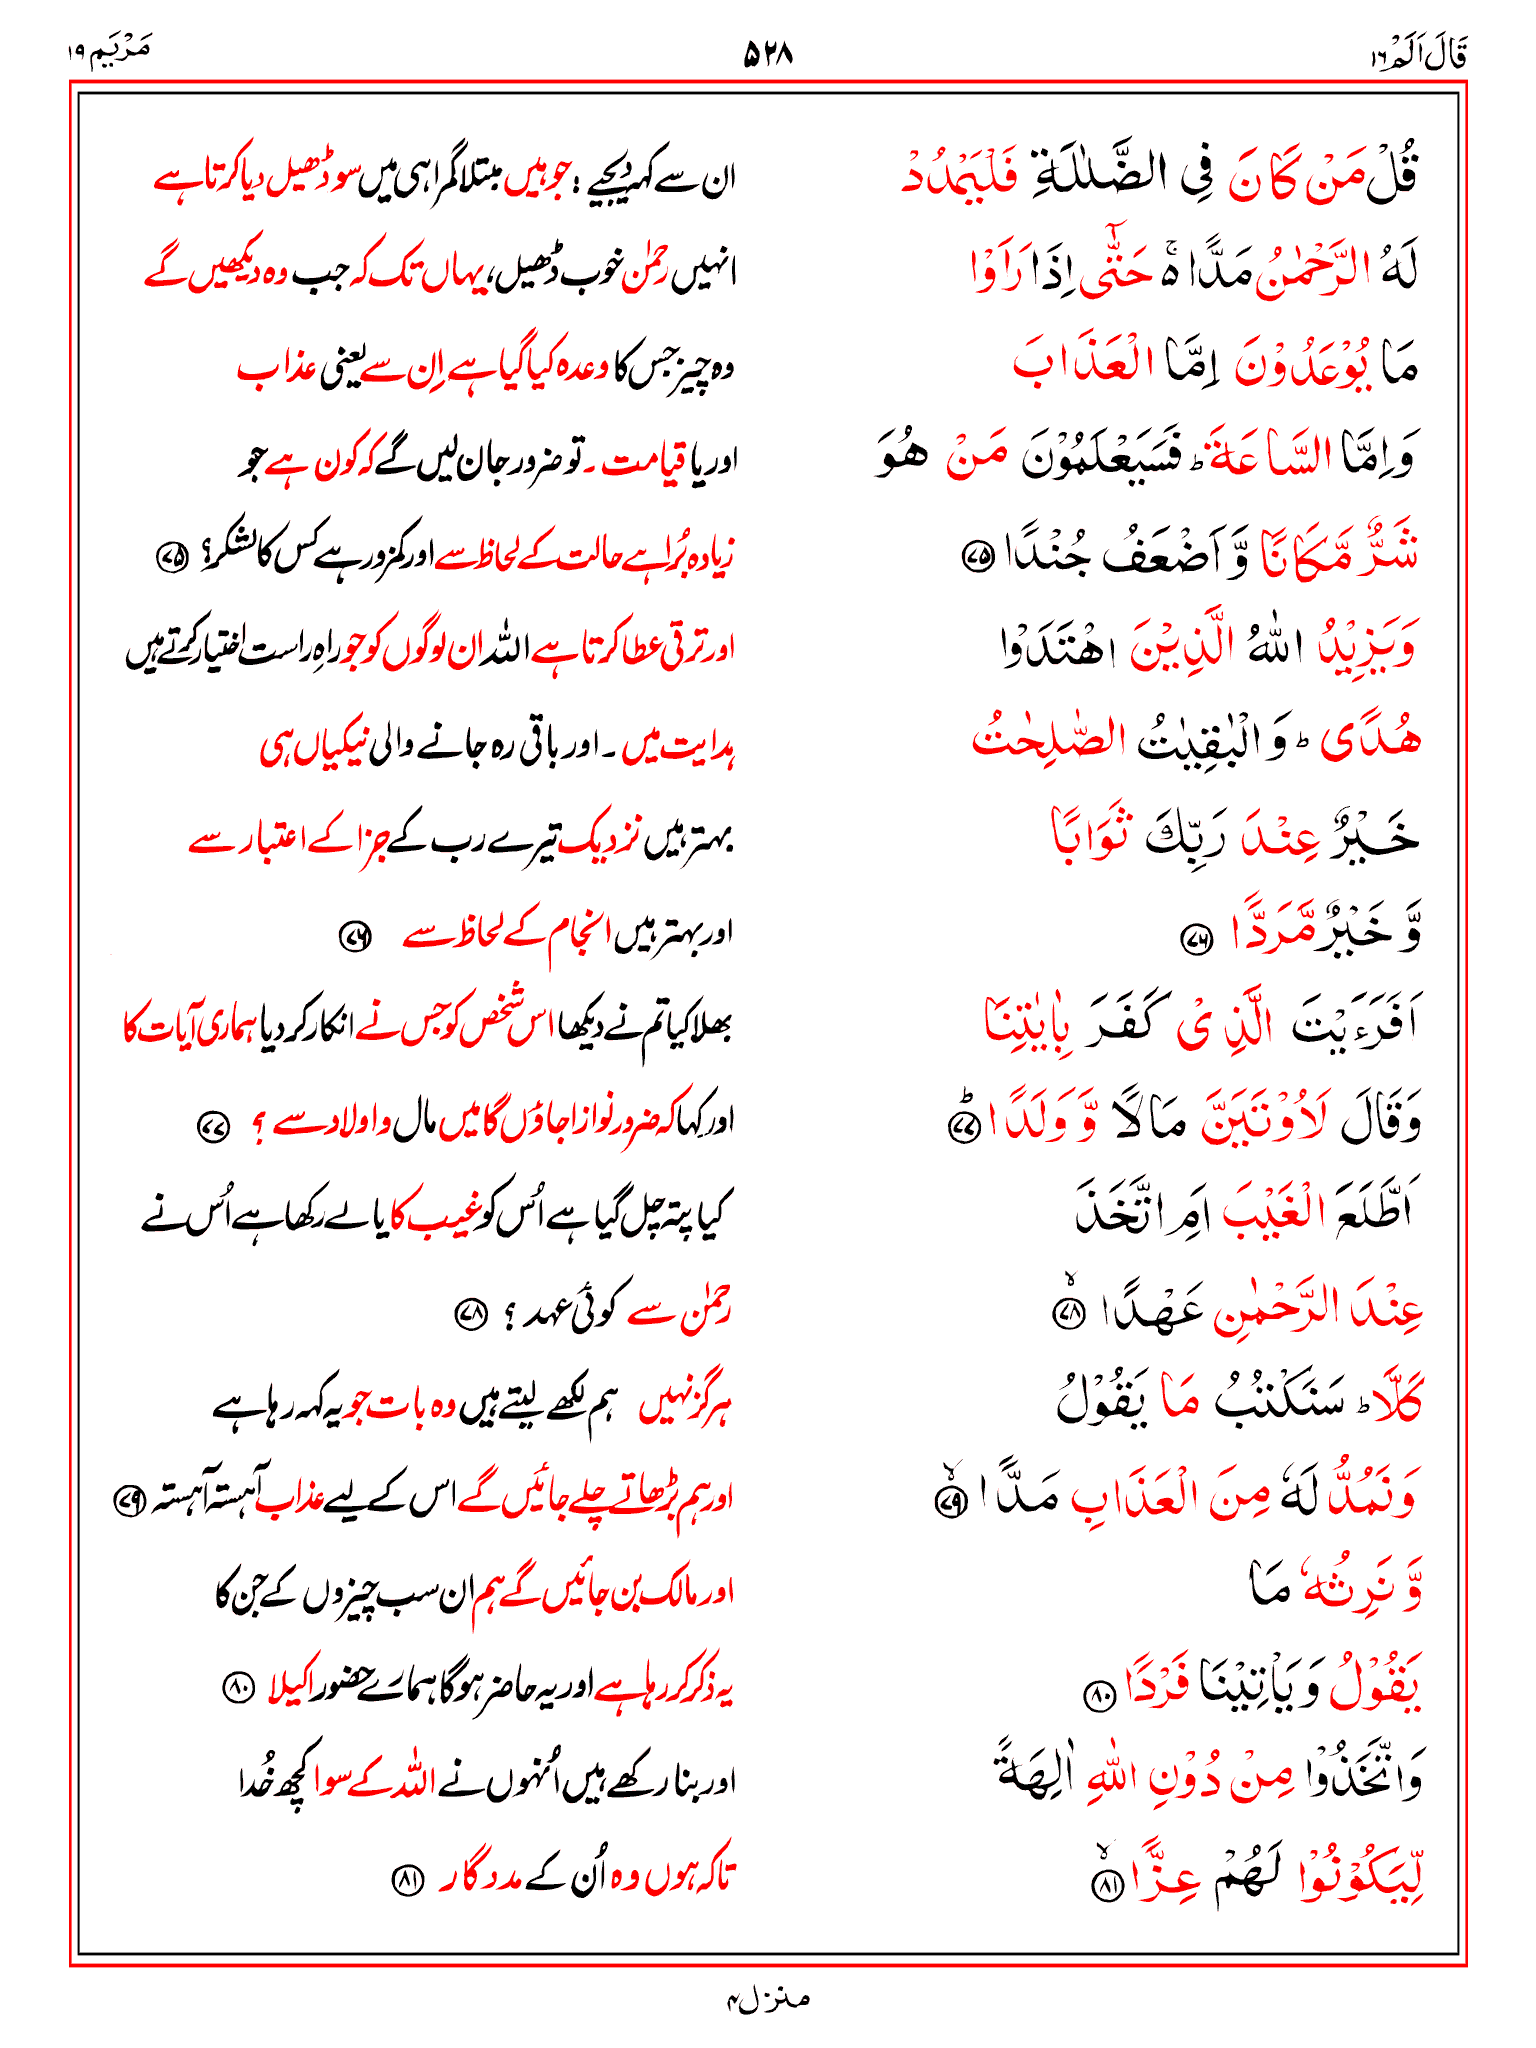 قَالَ اَلَمْ ١٦
۵۲۸
مَرْيَم ١٩
قُلْ مَنْ كَانَ فِي الضَّلٰلَةِ فَلْيَمْدُدْ
ان سے کہہ دیجیے: جو ہیں مبتلا گمراہی میں سو ڈھیل دیا کرتا ہے
لَهُ الرَّحْمٰنُ مَدًّا ۵ۚ حَتّٰٓى اِذَا رَاَوْا
انہیں رحمٰن خوب ڈھیل، یہاں تک کہ جب وہ دیکھیں گے
مَا يُوْعَدُوْنَ اِمَّا الْعَذَابَ
وہ چیز جس کا وعدہ کیا گیا ہے اِن سے یعنی عذاب
وَاِمَّا السَّاعَةَ ؕ فَسَيَعْلَمُوْنَ مَنْ هُوَ
اور یا قیامت۔ تو ضرور جان لیں گے کہ کون ہے جو
شَرٌّ مَّكَانًا وَّ اَضْعَفُ جُنْدًا ۷۵
زیادہ بُرا ہے حالت کے لحاظ سے اور کمزور ہے کس کا لشکر؟ ۷۵
وَيَزِيْدُ اللهُ الَّذِيْنَ اهْتَدَوْا
اور ترقی عطا کرتا ہے اللہ ان لوگوں کو جو راہِ راست اختیار کرتے ہیں
هُدًى ؕ وَ الْبٰقِيٰتُ الصّٰلِحٰتُ
ہدایت میں۔ اور باقی رہ جانے والی نیکیاں ہی
خَيْرٌ عِنْدَ رَبِّكَ ثَوَابًا
بہتر ہیں نزدیک تیرے رب کے جزا کے اعتبار سے
وَّ خَيْرٌ مَّرَدًّا ۷۶
اور بہتر ہیں انجام کے لحاظ سے ۷۶
اَفَرَءَيْتَ الَّذِىْ كَفَرَ بِاٰيٰتِنَا
بھلا کیا تم نے دیکھا اس شخص کو جس نے انکار کر دیا ہماری آیات کا
وَقَالَ لَاُوْتَيَنَّ مَالًا وَّ وَلَدًا ۷۷ؕ
اور کہا کہ ضرور نوازا جاؤں گا میں مال و اولاد سے ؟ ۷۷
اَطَّلَعَ الْغَيْبَ اَمِ اتَّخَذَ
کیا پتہ چل گیا ہے اُس کو غیب کا یا لے رکھا ہے اُس نے
عِنْدَ الرَّحْمٰنِ عَهْدًا ۷۸ۙ
رحمٰن سے کوئی عہد ؟ ۷۸
كَلَّا ؕ سَنَكْتُبُ مَا يَقُوْلُ
ہرگز نہیں ہم لکھے لیتے ہیں وہ بات جو یہ کہہ رہا ہے
وَ نَمُدُّ لَهٗ مِنَ الْعَذَابِ مَدًّا ۷۹ۙ
اور ہم بڑھاتے چلے جائیں گے اس کے لیے عذاب آہستہ آہستہ ۷۹
وَّ نَرِثُهٗ مَا
اور مالک بن جائیں گے ہم ان سب چیزوں کے جن کا
يَقُوْلُ وَ يَاْتِيْنَا فَرْدًا ۸۰
یہ ذکر کر رہا ہے اور یہ حاضر ہوگا ہمارے حضور اکیلا ۸۰
وَاتَّخَذُوْا مِنْ دُوْنِ اللهِ اٰلِهَةً
اور بنا رکھے ہیں اُنہوں نے اللہ کے سوا کچھ خُدا
لِّيَكُوْنُوْا لَهُمْ عِزًّا ۸۱ۙ
تاکہ ہوں وہ اُن کے مددگار ۸۱
منزل ۴